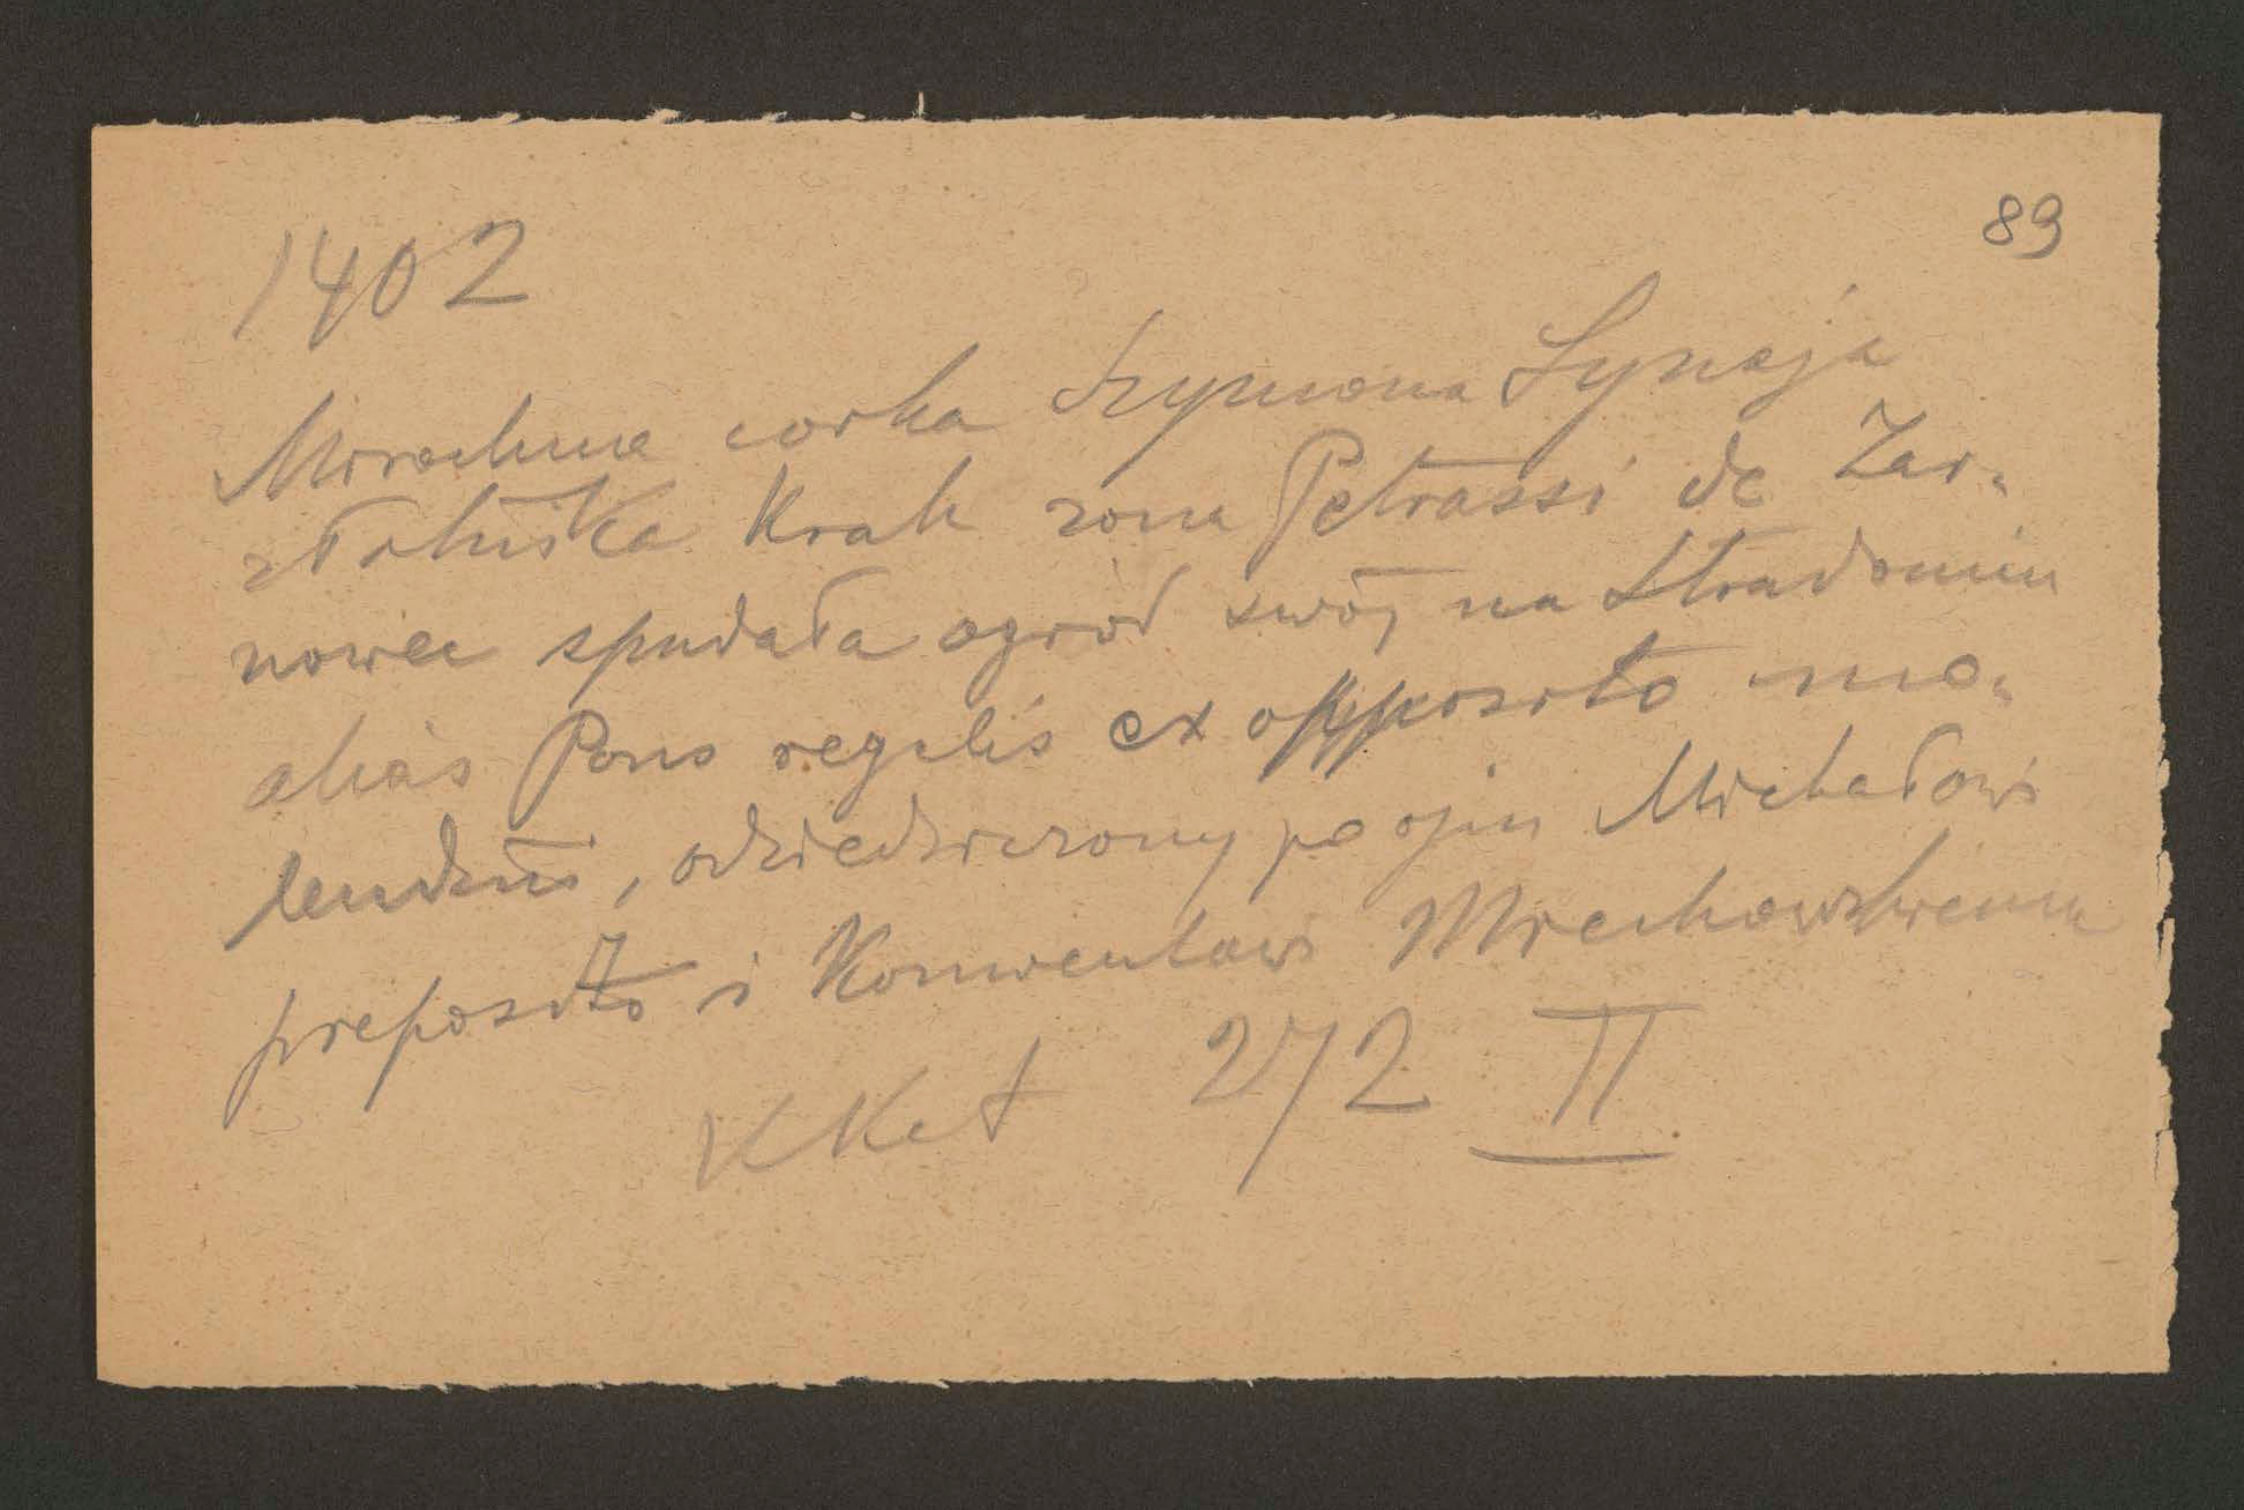 89
1402
Mirochna corka Szymona Syneja
złotnika Krak zona Petrassi de Zar-
nowec spudała ogród swój na Stradomiu
alias Pons regalis ex opposito mo-
lendini, odziedziczony po ojcu Michałowi
prepozito i Konwentowi Miechowskiemu
KKet 272 II